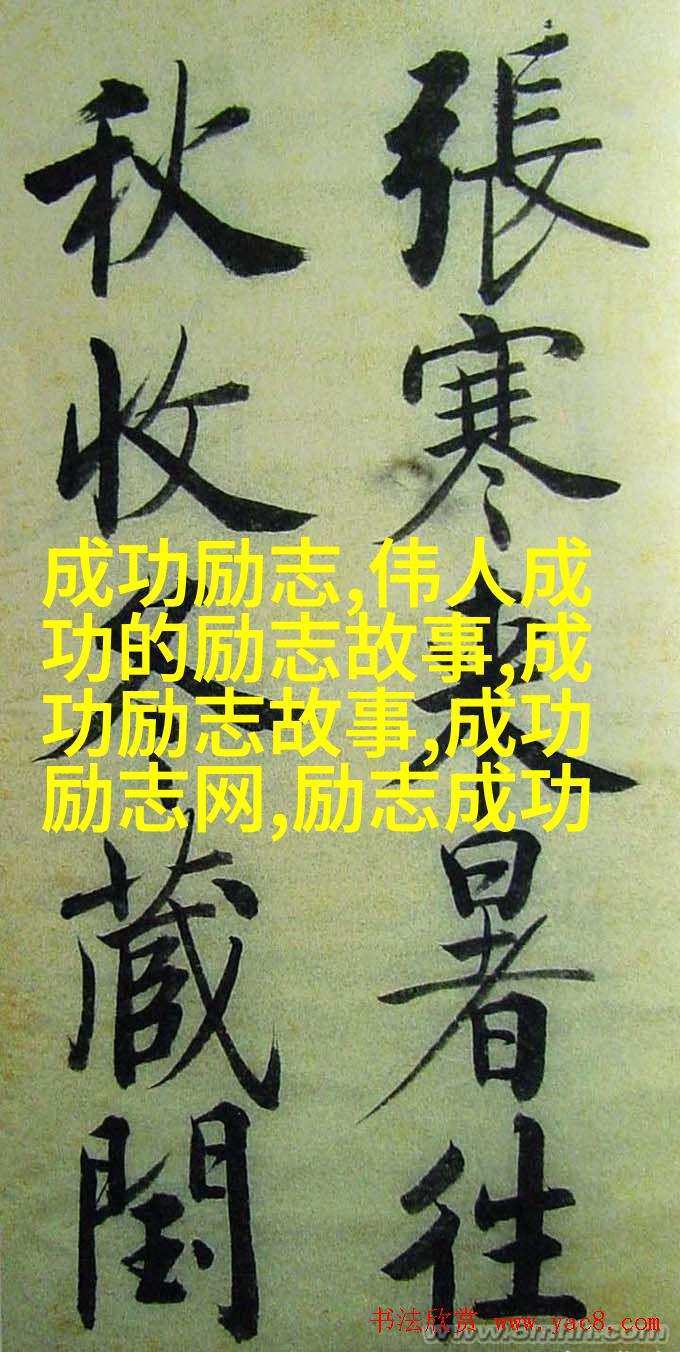 張寒来暑往
秋收冬蔵閏
成功励志,伟人成
功的励志故事,成
功励志故事,成功
励志网,励志成功
书法欣赏 www.yac8.com